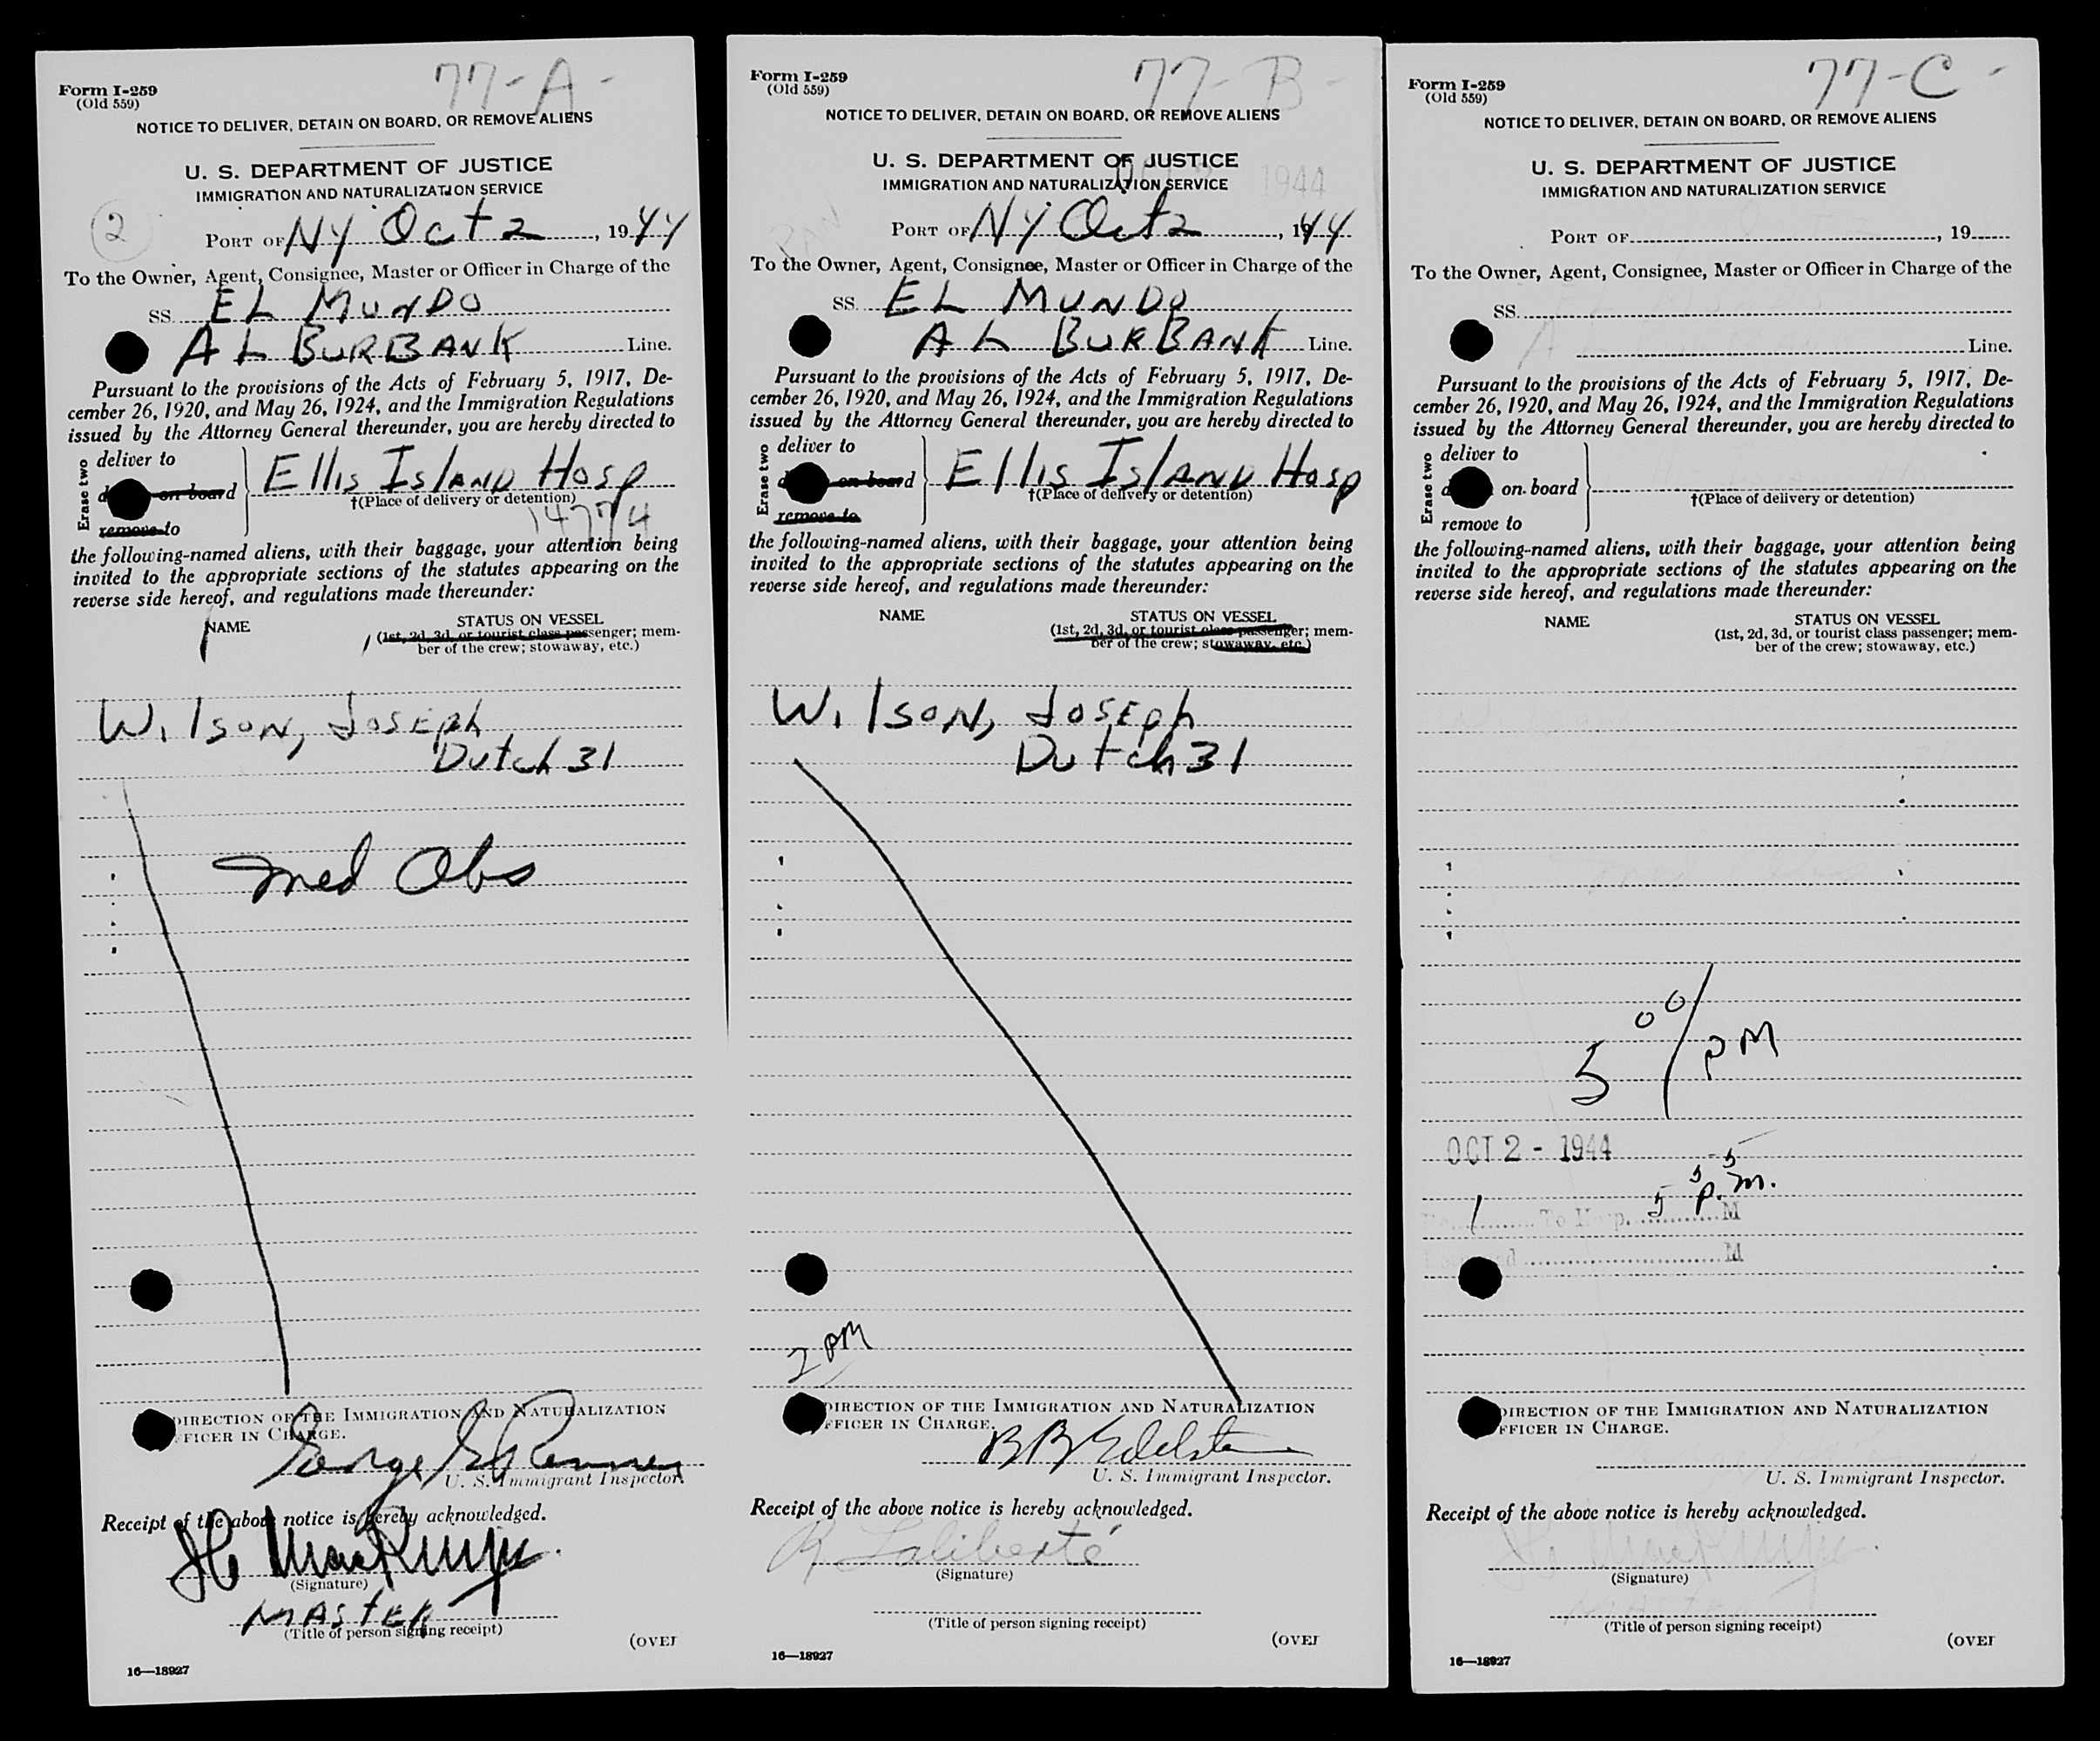 77-A-
Form I-259
(Old 559)
NOTICE TO DELIVER, DETAIN ON BOARD, OR REMOVE ALIENS
U. S. DEPARTMENT OF JUSTICE
IMMIGRATION AND NATURALIZATION SERVICE
2
PORT OF NY Oct 2, 1944
To the Owner, Agent, Consignee, Master or Officer in Charge of the
SS. EL MUNDO
AL BURBANK Line.
Pursuant to the provisions of the Acts of February 5, 1917, De-
cember 26, 1920, and May 26, 1924, and the Immigration Regulations
issued by the Attorney General thereunder, you are hereby directed to
Erase two
deliver to
on board
remove to
Ellis Island Hosp
†(Place of delivery or detention)
14774
the following-named aliens, with their baggage, your attention being
invited to the appropriate sections of the statutes appearing on the
reverse side hereof, and regulations made thereunder:
NAME
STATUS ON VESSEL
(1st, 2d, 3d, or tourist class passenger; mem-
ber of the crew; stowaway, etc.)
Wilson, Joseph
Dutch 31
Med Obs
DIRECTION OF THE IMMIGRATION AND NATURALIZATION
FICER IN CHARGE.
George
U. S. Immigrant Inspector.
Receipt of the above notice is hereby acknowledged.
(Signature)
MASTER
(Title of person signing receipt)
(OVER
16—18927
77-B-
Form I-259
(Old 559)
NOTICE TO DELIVER, DETAIN ON BOARD, OR REMOVE ALIENS
U. S. DEPARTMENT OF JUSTICE
IMMIGRATION AND NATURALIZATION SERVICE
1944
PORT OF NY Oct 2, 1944
To the Owner, Agent, Consignee, Master or Officer in Charge of the
SS. EL MUNDO
AL BURBANK Line.
Pursuant to the provisions of the Acts of February 5, 1917, De-
cember 26, 1920, and May 26, 1924, and the Immigration Regulations
issued by the Attorney General thereunder, you are hereby directed to
Erase two
deliver to
on board
remove to
Ellis Island Hosp
†(Place of delivery or detention)
the following-named aliens, with their baggage, your attention being
invited to the appropriate sections of the statutes appearing on the
reverse side hereof, and regulations made thereunder:
NAME
STATUS ON VESSEL
(1st, 2d, 3d, or tourist class passenger; mem-
ber of the crew; stowaway, etc.)
Wilson, Joseph
Dutch 31
2 PM
DIRECTION OF THE IMMIGRATION AND NATURALIZATION
FFICER IN CHARGE.
B B Edelstein
U. S. Immigrant Inspector.
Receipt of the above notice is hereby acknowledged.
R Laliberté
(Signature)
(Title of person signing receipt)
(OVER
16—18927
77-C-
Form I-259
(Old 559)
NOTICE TO DELIVER, DETAIN ON BOARD, OR REMOVE ALIENS
U. S. DEPARTMENT OF JUSTICE
IMMIGRATION AND NATURALIZATION SERVICE
PORT OF , 19
To the Owner, Agent, Consignee, Master or Officer in Charge of the
SS.
Line.
Pursuant to the provisions of the Acts of February 5, 1917, De-
cember 26, 1920, and May 26, 1924, and the Immigration Regulations
issued by the Attorney General thereunder, you are hereby directed to
Erase two
deliver to
on board
remove to
†(Place of delivery or detention)
the following-named aliens, with their baggage, your attention being
invited to the appropriate sections of the statutes appearing on the
reverse side hereof, and regulations made thereunder:
NAME
STATUS ON VESSEL
(1st, 2d, 3d, or tourist class passenger; mem-
ber of the crew; stowaway, etc.)
5 00/PM
OCT 2 - 1944
1 To Hosp. 5 55 p.m. M
M
DIRECTION OF THE IMMIGRATION AND NATURALIZATION
FFICER IN CHARGE.
U. S. Immigrant Inspector.
Receipt of the above notice is hereby acknowledged.
(Signature)
(Title of person signing receipt)
(OVER
16—18927